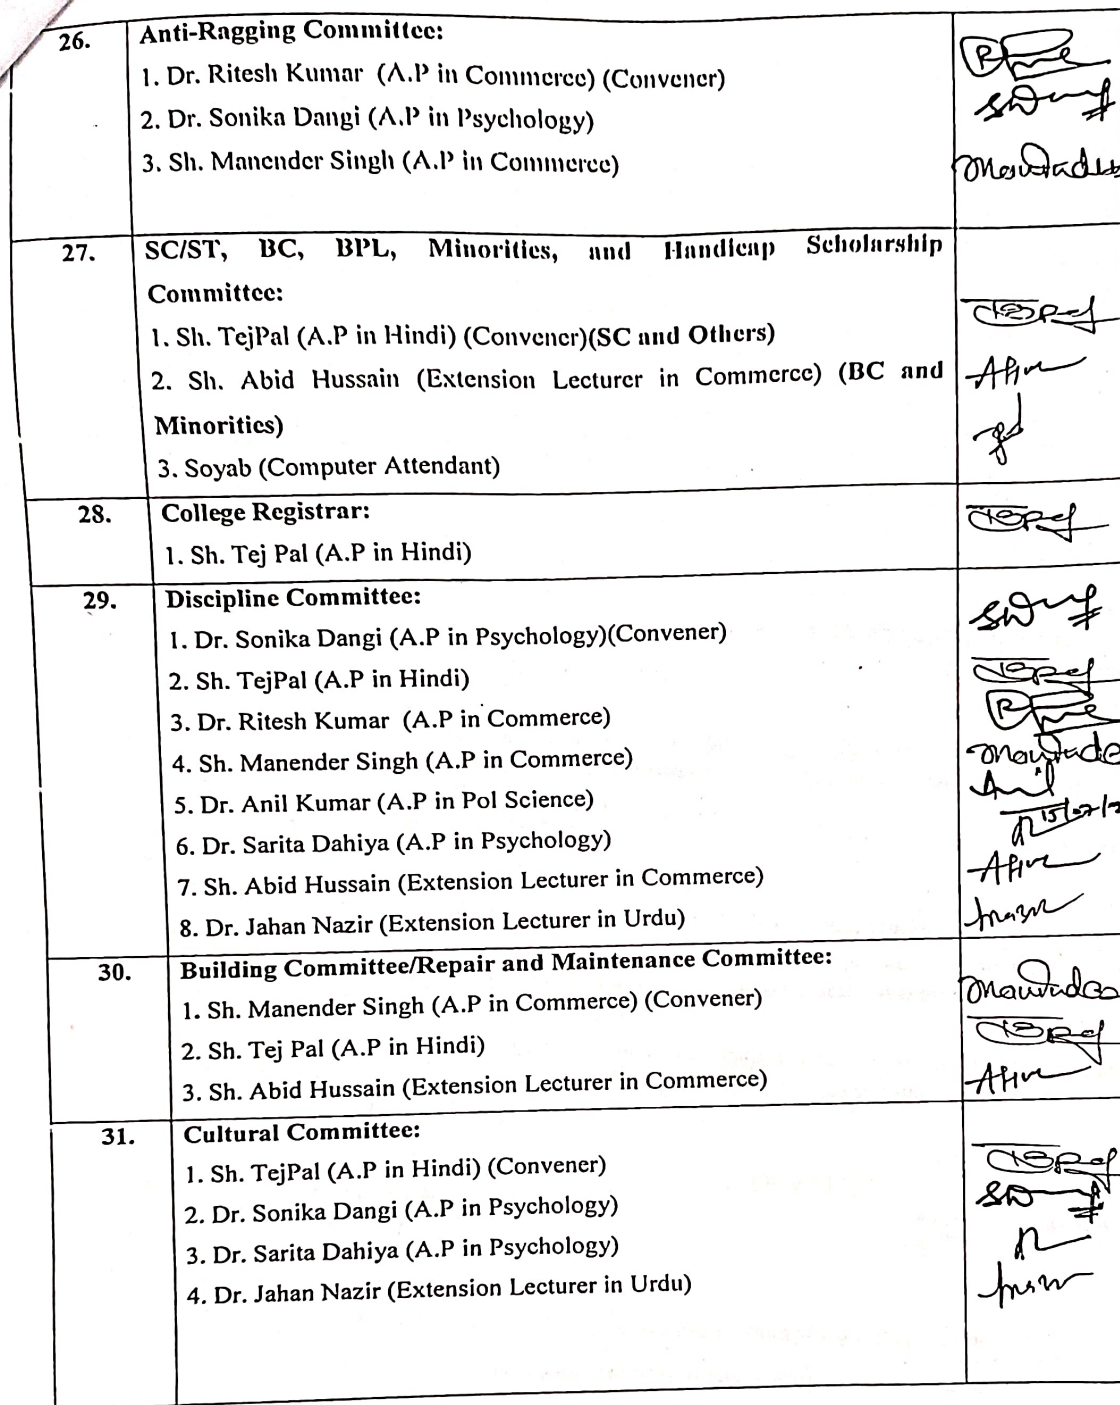 26.
Anti-Ragging Committee:
1. Dr. Ritesh Kumar (A.P in Commerce) (Convener)
2. Dr. Sonika Dangi (A.P in Psychology)
3. Sh. Manender Singh (A.P in Commerce)
27.
SC/ST, BC, BPL, Minorities, and Handicap Scholarship
Committee:
1. Sh. TejPal (A.P in Hindi) (Convener)(SC and Others)
2. Sh. Abid Hussain (Extension Lecturer in Commerce) (BC and
Minorities)
3. Soyab (Computer Attendant)
28.
College Registrar:
1. Sh. Tej Pal (A.P in Hindi)
29.
Discipline Committee:
1. Dr. Sonika Dangi (A.P in Psychology)(Convener)
2. Sh. TejPal (A.P in Hindi)
3. Dr. Ritesh Kumar (A.P in Commerce)
4. Sh. Manender Singh (A.P in Commerce)
5. Dr. Anil Kumar (A.P in Pol Science)
Anil
6. Dr. Sarita Dahiya (A.P in Psychology)
7. Sh. Abid Hussain (Extension Lecturer in Commerce)
8. Dr. Jahan Nazir (Extension Lecturer in Urdu)
30.
Building Committee/Repair and Maintenance Committee:
1. Sh. Manender Singh (A.P in Commerce) (Convener)
2. Sh. Tej Pal (A.P in Hindi)
3. Sh. Abid Hussain (Extension Lecturer in Commerce)
31.
Cultural Committee:
1. Sh. TejPal (A.P in Hindi) (Convener)
2. Dr. Sonika Dangi (A.P in Psychology)
3. Dr. Sarita Dahiya (A.P in Psychology)
4. Dr. Jahan Nazir (Extension Lecturer in Urdu)